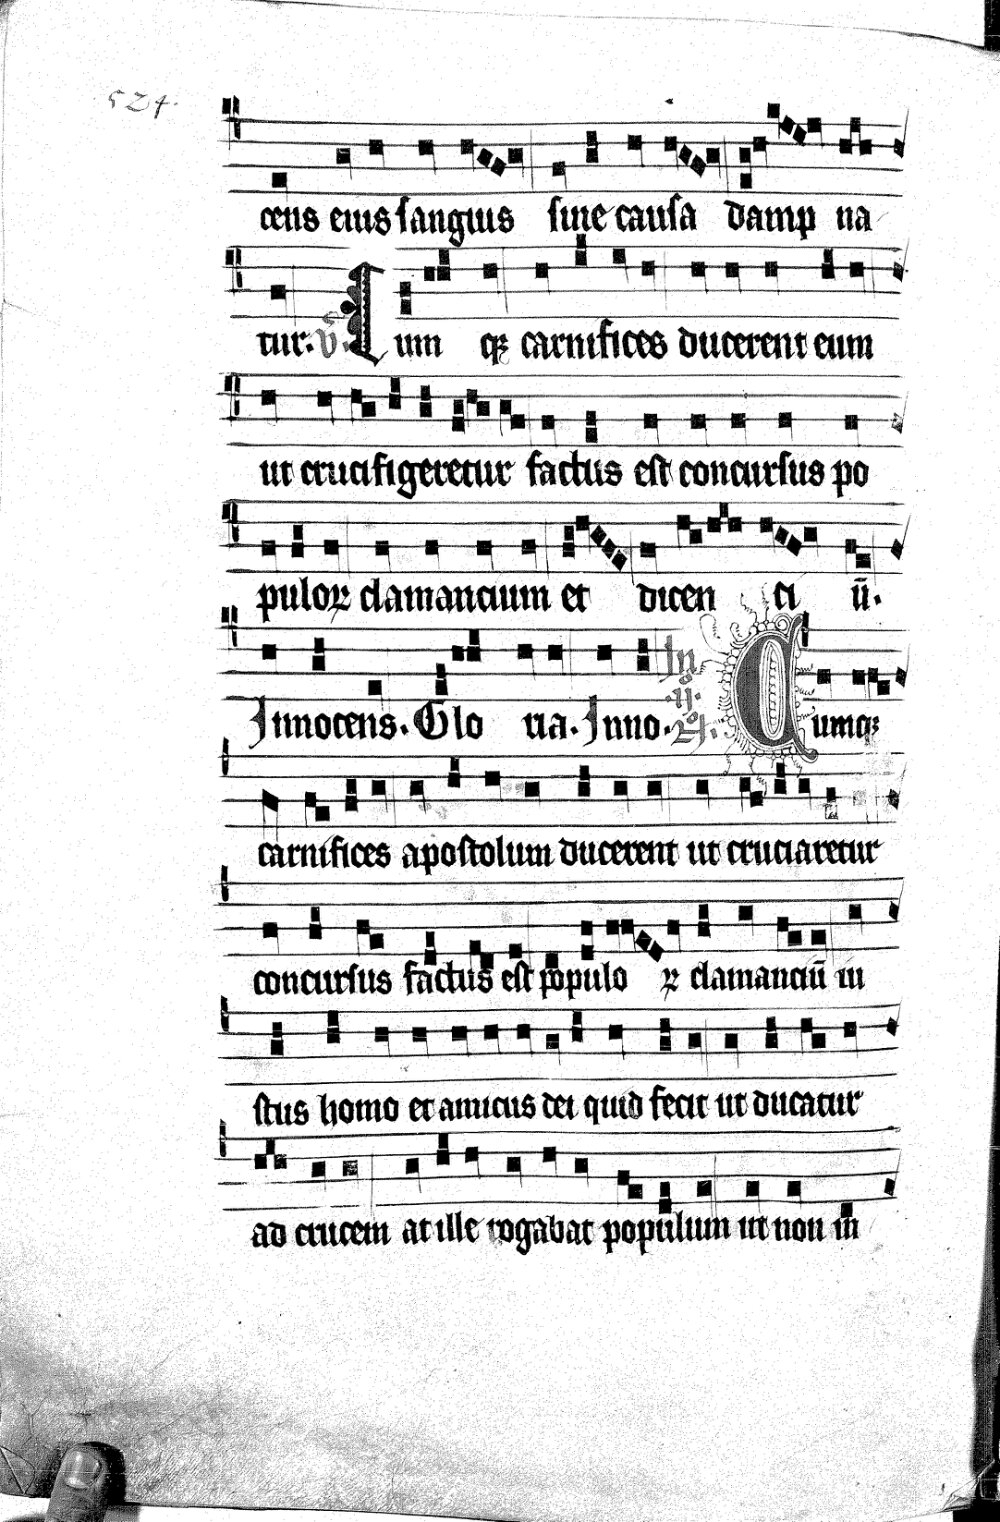 524.
cens eius sanguis sine causa dampna
tur. v̄. Cumqꝫ carnifices ducerent eum
ut crucifigeretur factus est concursus po
puloꝝ clamancium et dicenciū.
Innocens. Gloria. Inno. In .ij. Cumqꝫ
carnifices apostolum ducerent ut cruciaretur
concursus factus est populoꝝ clamanciū iu
stus homo et amicus dei quid fecit ut ducatur
ad crucem at ille rogabat populum ut non in